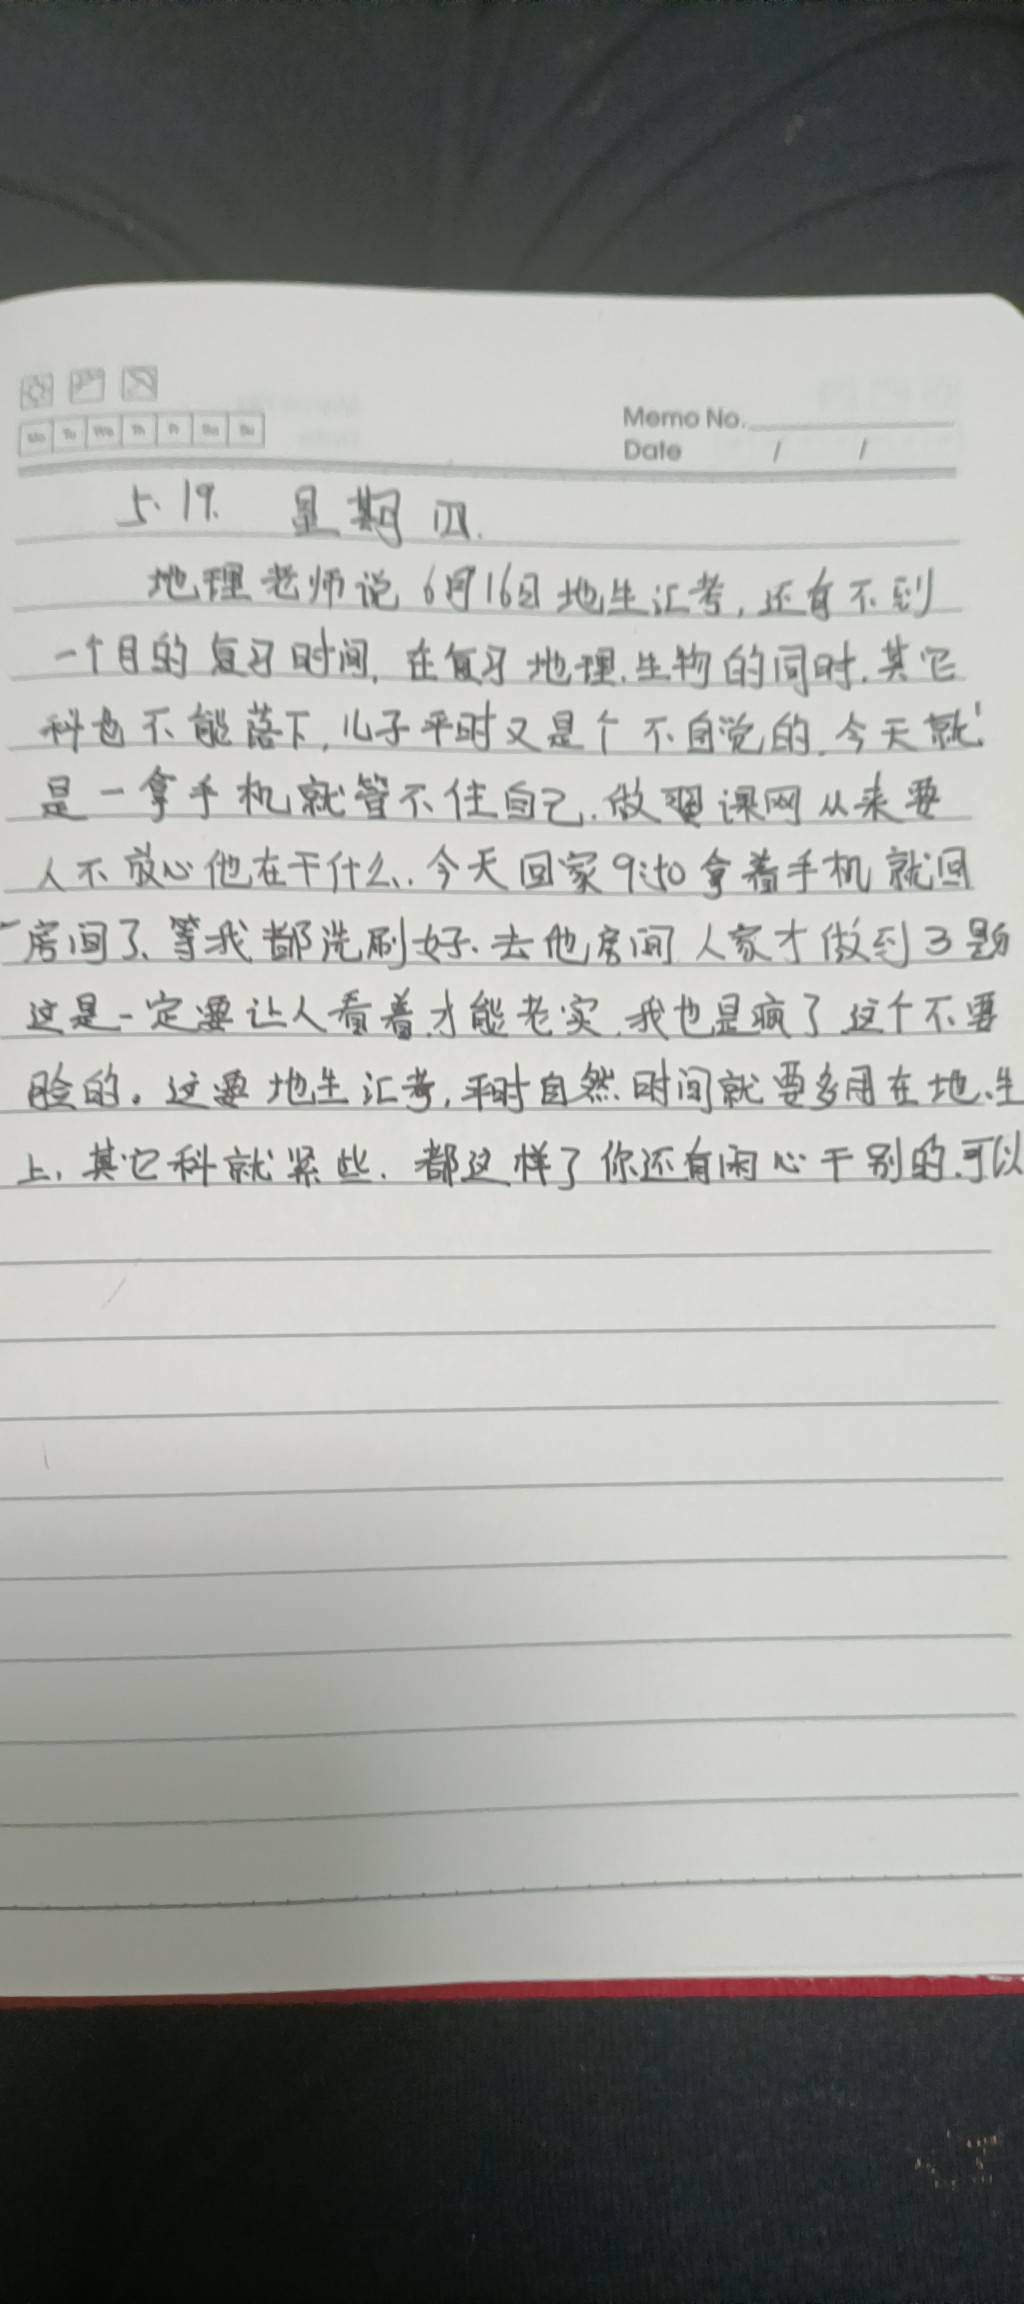 Memo No.
Mo Tu We Th Fr Sa Su
Date / /
5.19. 星期四.
地理老师说6月16日地生汇考,还有不到
一个月的复习时间,在复习地理.生物的同时.其它
科也不能落下,儿子平时又是个不自觉的.今天就
是一拿手机就管不住自己.做 课网从来要
人不放心他在干什么..今天回家 拿着手机就回
房间了、等我都洗刷好.去他房间人家才做到3题
这是一定要让人看着才能老实.我也是疯了这个不要
脸的。这要地生汇考,平时自然时间就要多用在地.生
上,其它科就紧些.都这样了你还有闲心干别的.可以